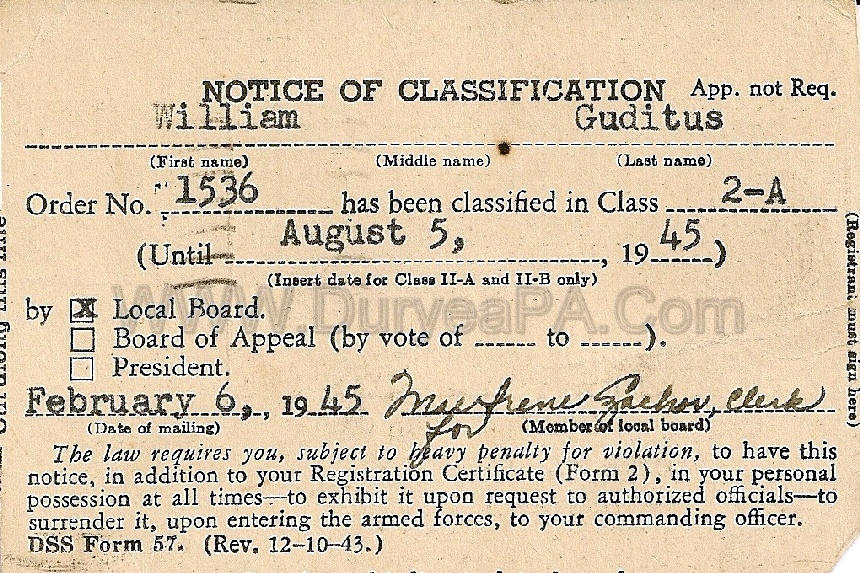 NOTICE OF CLASSIFICATION App. not Req.
William Guditus
(First name) (Middle name) (Last name)
Order No. 1536 has been classified in Class 2-A
(Until August 5, 1945)
(Insert date for Class II-A and II-B only)
by X Local Board.
Board of Appeal (by vote of ------ to ------).
President.
February 6, , 1945 Irene, Clerk
(Date of mailing) for (Member of local board)
The law requires you, subject to heavy penalty for violation, to have this
notice, in addition to your Registration Certificate (Form 2), in your personal
possession at all times—to exhibit it upon request to authorized officials—to
surrender it, upon entering the armed forces, to your commanding officer.
DSS Form 57. (Rev. 12-10-43.)
(Registrant must sign here)
along this line
WWW.DuryeaPA.Com